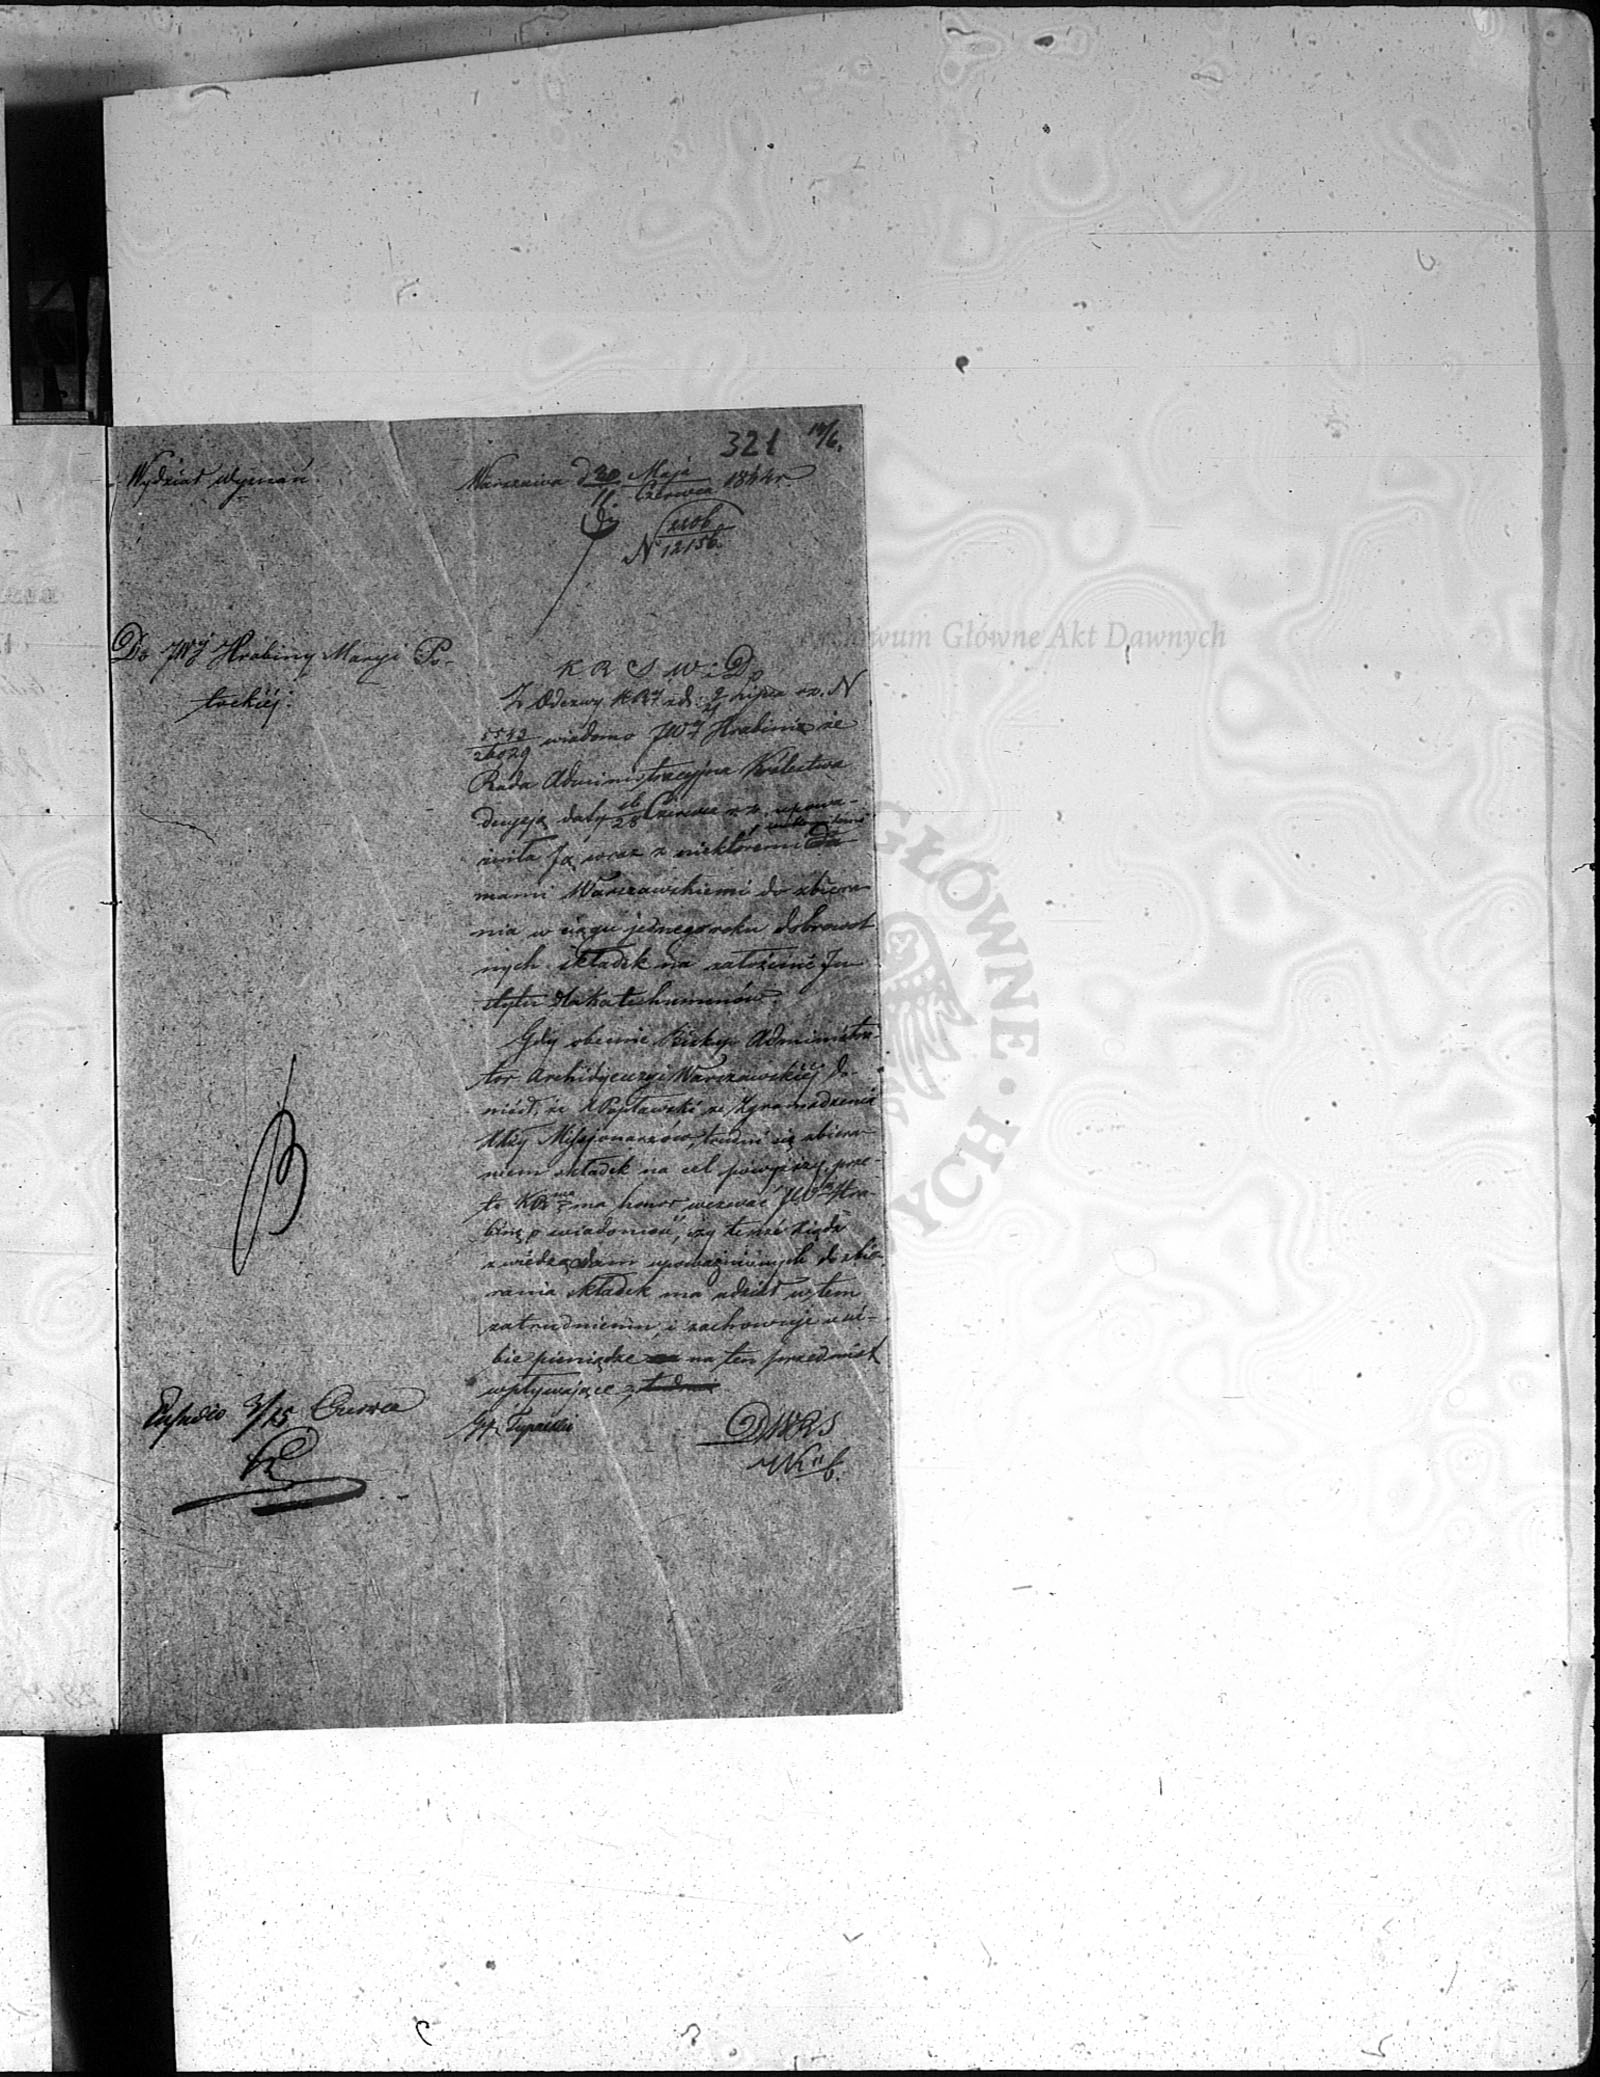 321 14/6.
Wydział Wyznań.
Warszawa d 30 Maja 1844 r.
11 Czerwca
2106
N 12156.
Do JWJ Hrabiny Maryi Po-
tockiej.
K R S W i D
Z Odezwy KRJ z d: 9/21 Lipca r. z. N
5543/26029 wiadomo JWJ Hrabinie że
Rada Administracyjna Królestwa
decyzją daty 16/28 Czerwca r. z. upowa-
żniła Ją wraz z niektóremi Da
mami Warszawskiemi do zbiera
nia w ciągu jednego roku dobrowol
nych składek na założenie In
stytu dla Katechumenów.
Gdy obecnie Biskup Administra-
tor Archidyecezyi Warszawskiej do-
niósł, że X Popławski ze Zgromadzenia
XXży Missjonarzów, trudni się zbiera-
niem składek na cel powyższy, prze-
to KR ma honor wezwać JW Hra-
binę o wiadomość, czy tenże Xiądz
z wiedzą Dam upoważnionych do zbie-
rania składek ma udział w tem
zatrudnieniu, i zachowuje u sie-
bie pieniądze na ten przedmiot
wpływające,
3/15 Czerwca
DWRS
Archiwum Główne Akt Dawnych
GŁÓWNE
YCH